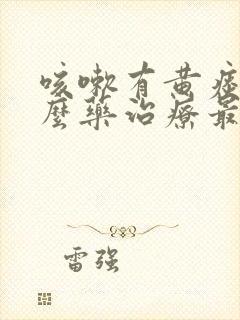 咳嗽有黄痰
麼藥治療最
雷强